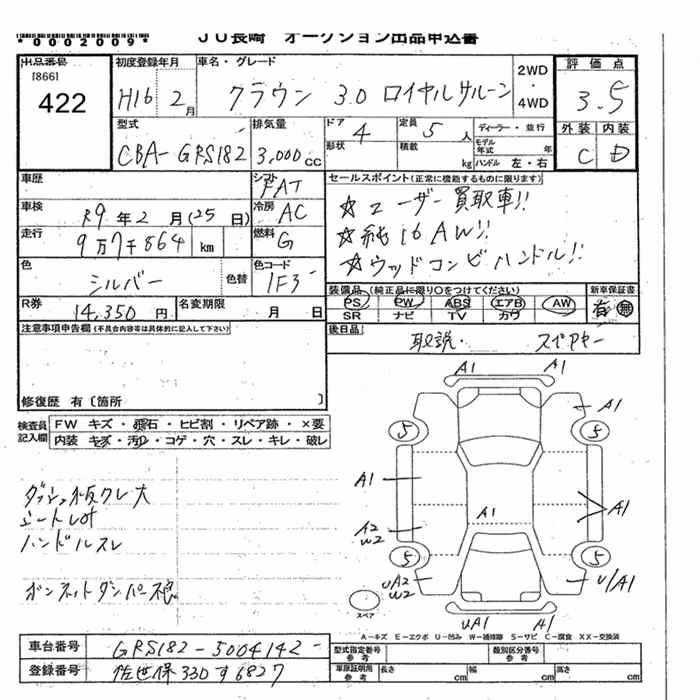 *0002009*
JU長崎 オークション出品申込書
出品番号
[866]
422
初度登録年月
H16年 2月
車名・グレード
クラウン 3.0 ロイヤルサルーン
2WD
・
4WD
評価点
3.5
外装 内装
C D
型式
CBA-GRS182
排気量
3,000cc
ドア 4
形状
定員 5人
積載 kg
ディーラー・並行
モデル年式 年
ハンドル 左・右
車歴
シフト FAT
車検
R9年2月(25日)
冷房 AC
走行
9万7千864 km
燃料 G
色
シルバー
色替
色コード
1F3
R券
14,350円
名変期限
月 日
セールスポイント(正常に機能するものに限ります)
☆ユーザー買取車!!
☆純16AW!!
☆ウッドコンビハンドル!!
装備品(純正品に限り○をつけてください)
PS PW ABS エアB AW
SR ナビ TV カワ
新車保証書
有 無
後日品
取説・ スペアキー
注意事項申告欄(不具合内容等は具体的に記入して下さい)
修復歴 有〔箇所 〕
検査員記入欄
FW キズ・飛石・ヒビ割・リペア跡・×要
内装 キズ・汚れ・コゲ・穴・スレ・キレ・破レ
ハンドルスレ
ボンネットダンパー不良
A1 A1
A1
5 5
A1
A1
A1
A2
W2
5 5
UA2
W2
U/A1
スペア
UA1 A1
A-キズ E-エクボ U-凹み W-補修跡 S-サビ C-腐食 XX-交換済
車台番号
GRS182-5004142
登録番号
佐世保330す6827
型式指定番号
参考
類別区分番号
参考
車庫証明用
参考
長さ cm
幅 cm
高さ cm